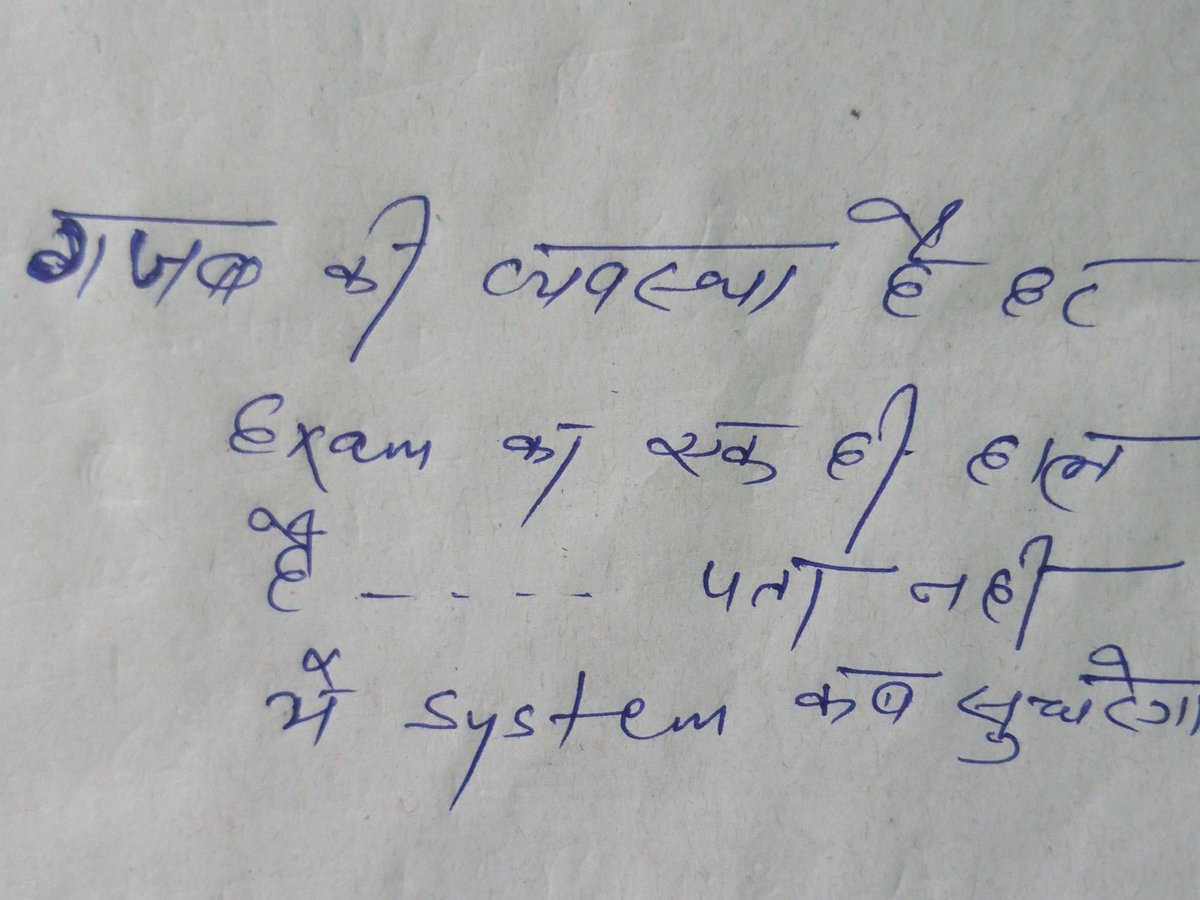 गजब की व्यवस्था है हर
Exam का एक ही हाल
है - - - - पता नही
ये system कब सुधरेगा